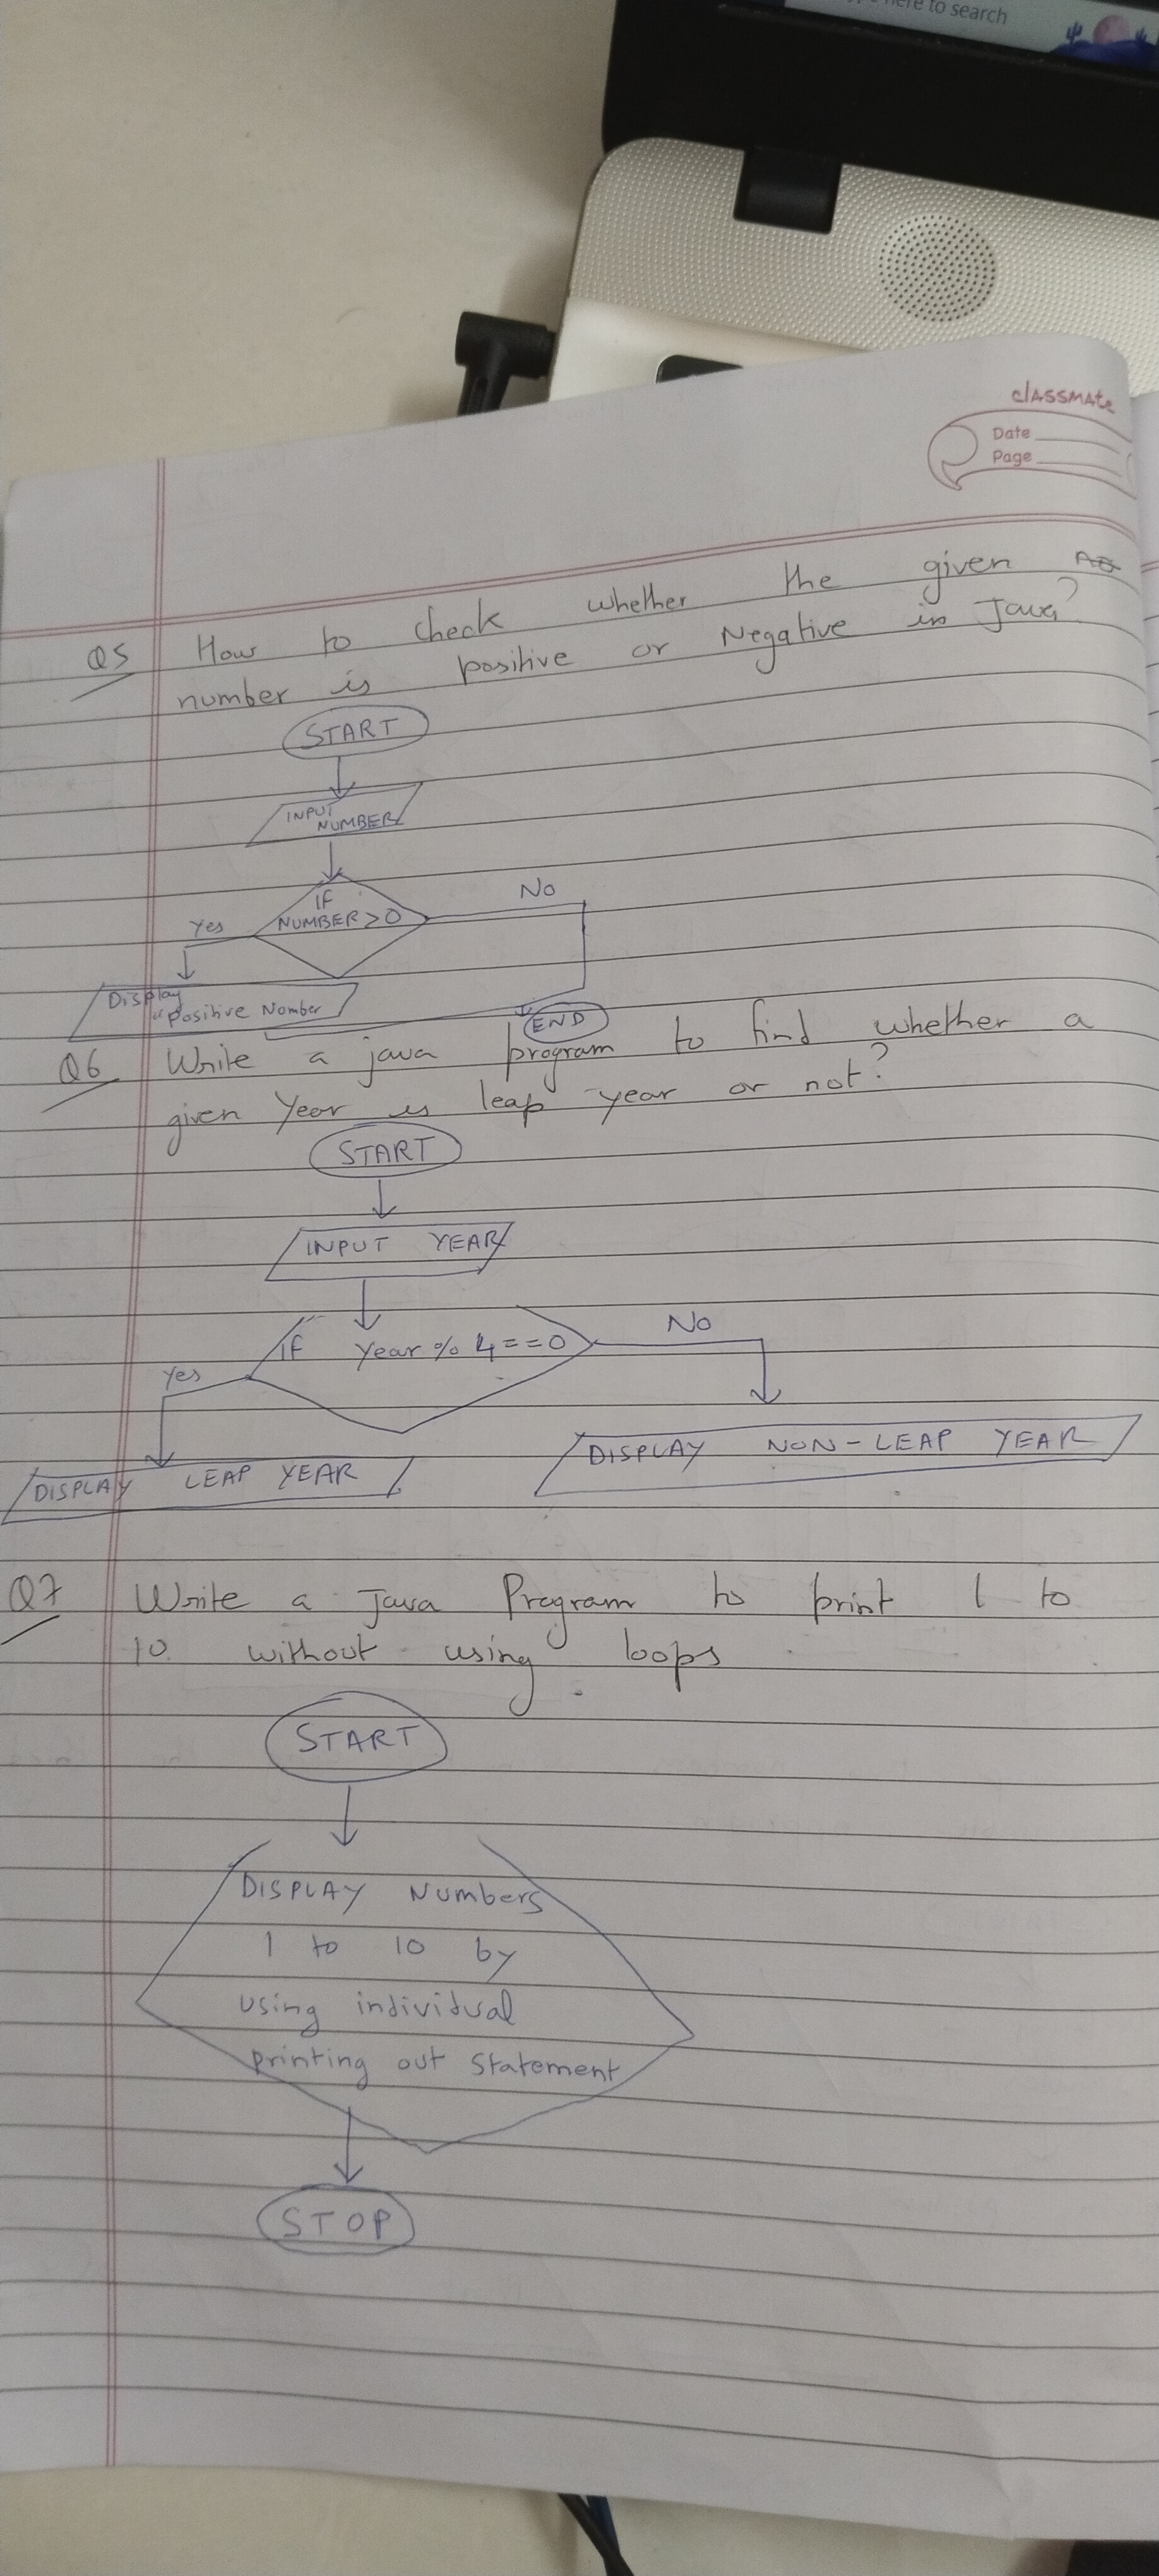 here to search
classmate
Date
Page
Q5 How to check whether the given
number is positive or Negative in Java?
START
INPUT
NUMBER
IF
NUMBER > 0
Yes
No
Display
"Positive Number
END
Q6 Write a java program to find whether a
given Year is leap year or not?
START
INPUT YEAR
IF Year % 4 == 0
Yes
No
DISPLAY LEAP YEAR
DISPLAY NON-LEAP YEAR
Q7 Write a Java Program to print 1 to
10 without using loops
START
DISPLAY Numbers
1 to 10 by
using individual
printing out statement
STOP